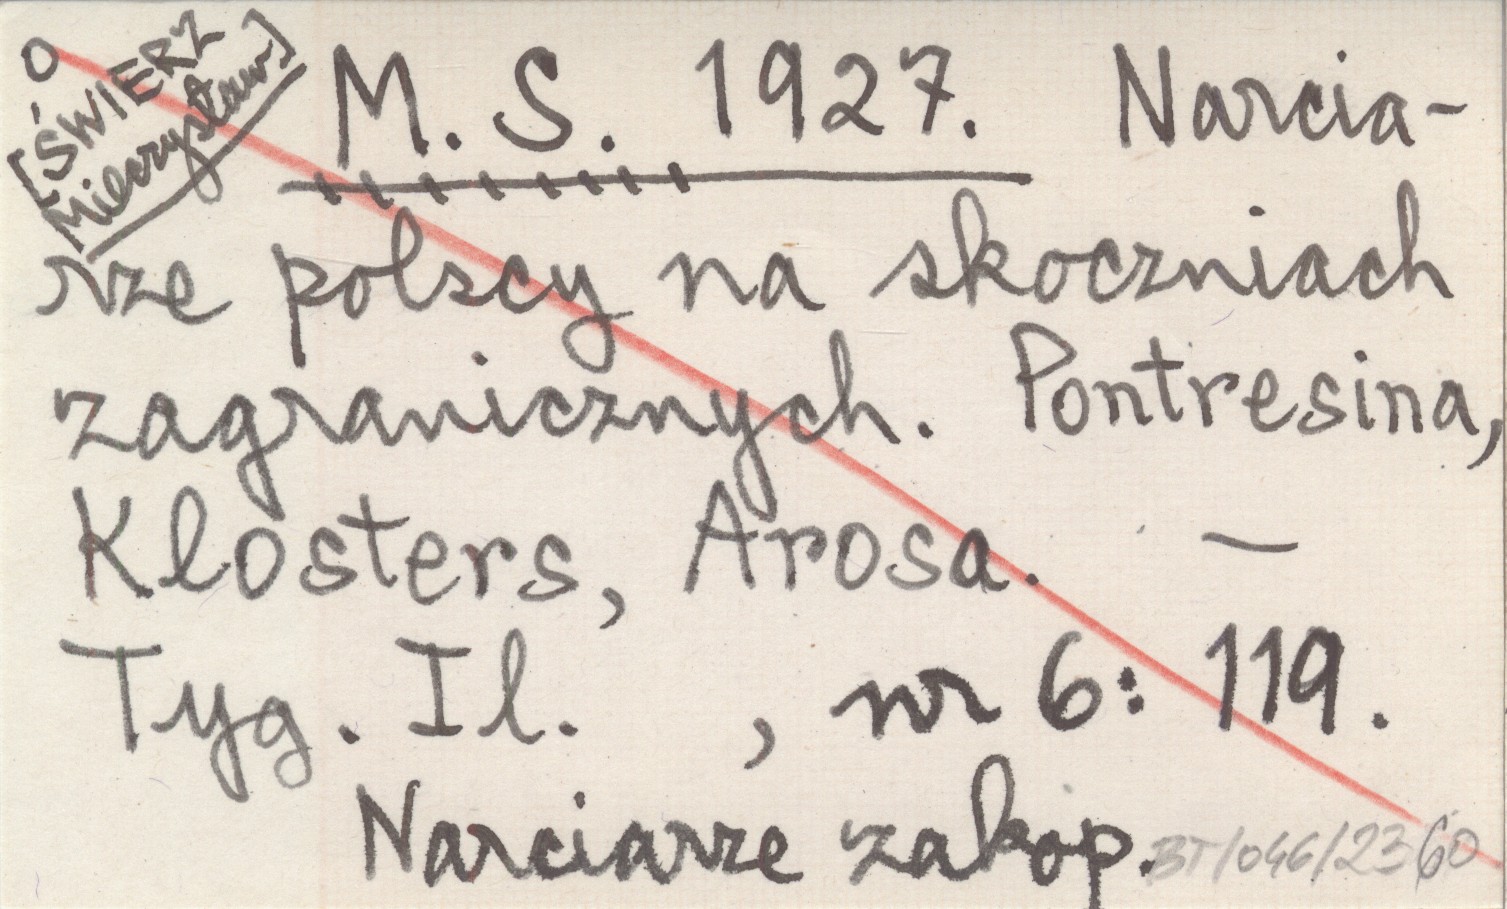 O
[ŚWIERZ
Mieczysław]
M. S. 1927. Narcia-
rze polscy na skoczniach
zagranicznych. Pontresina,
Klosters, Arosa. —
Tyg. Il. , nr 6: 119.
Narciarze zakop.
BT/046/2360